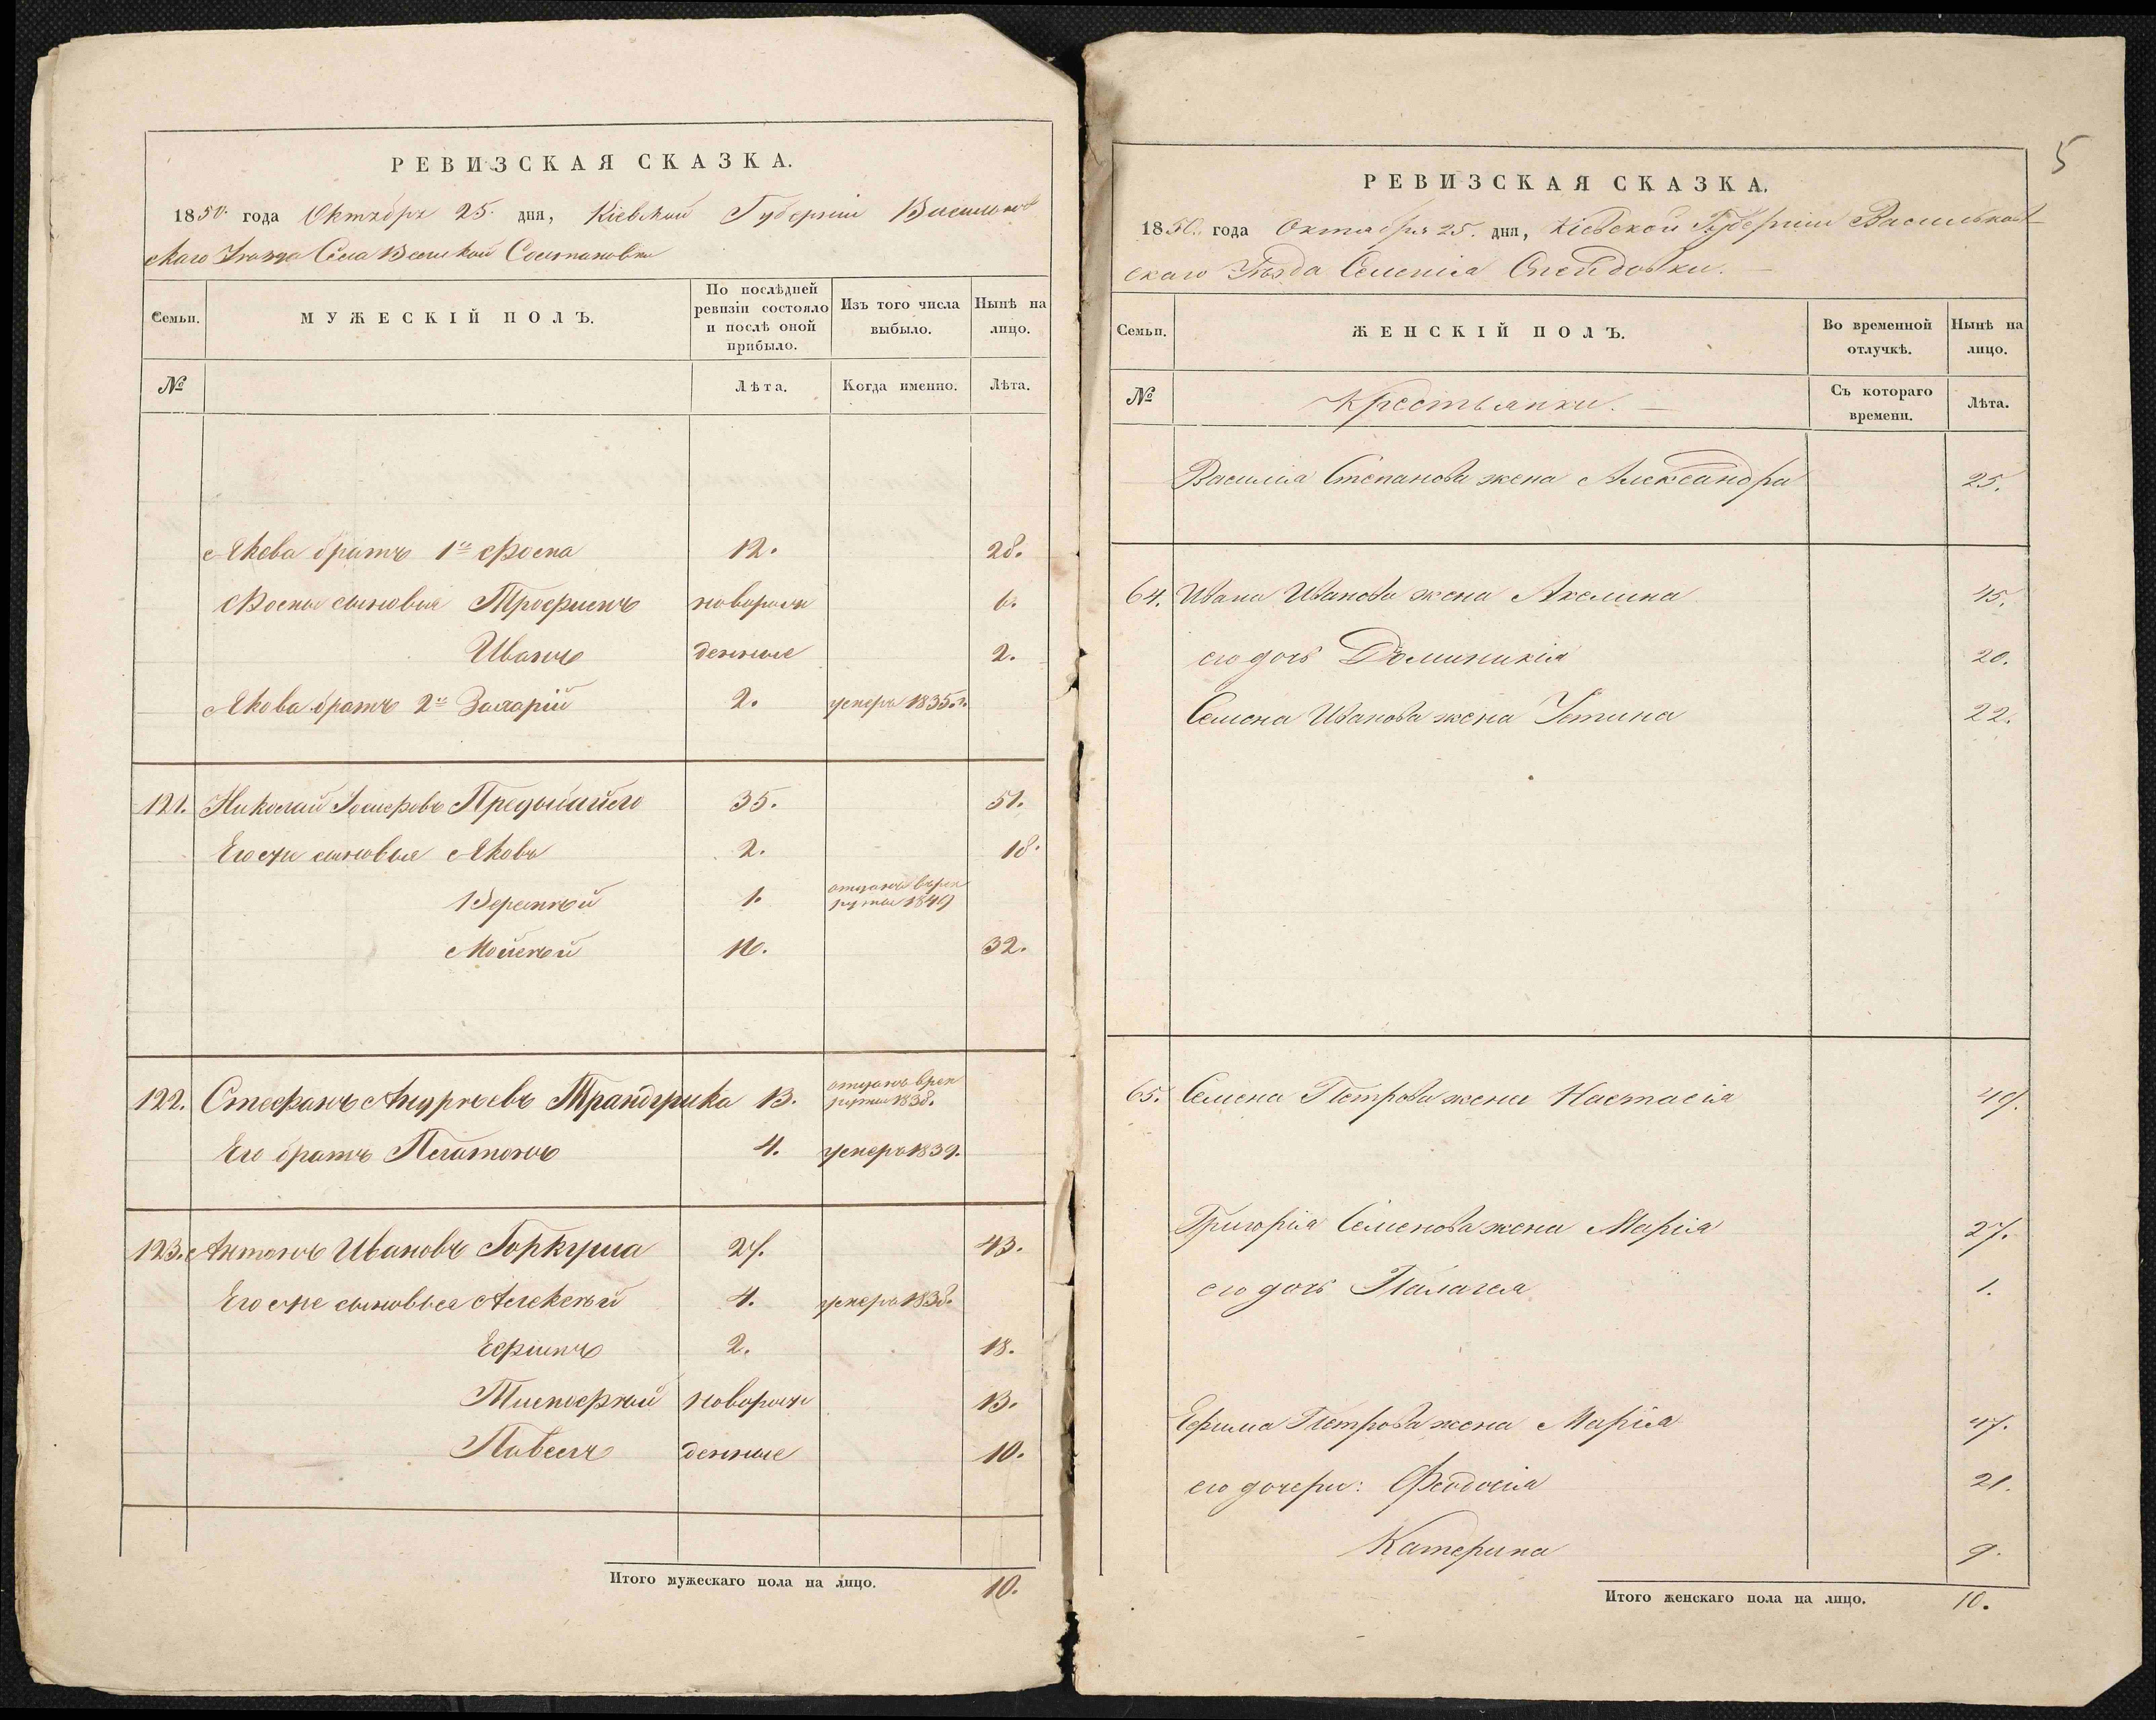 РЕВИЗСКАЯ СКАЗКА.
1850 года Октября 25. дня, Кіевской Губерніи Васильков
скаго Уѣзда Села Великой Солтановки
Семьи. МУЖЕСКІЙ ПОЛЪ. По послѣдней ревизіи состояло и послѣ оной прибыло. Изъ того числа выбыло. Нынѣ на лицо.
№ Лѣта. Когда именно. Лѣта.
Якова братъ 1й Фома 12. 28.
Фомы сыновья Трофимъ новорож 6.
Иванъ денные 2.
Якова братъ 2й Захарій 2. умеръ 1835.г.
121. Николай Іосифовъ 35. 51.
Его же сыновья Яковъ 2. 18.
1. отданъ въ рек
руты 1849
Мойсей 16. 32.
122. Стефанъ Андреевъ 13. отданъ в рек
руты 1838.
Его братъ Платонъ 4. умеръ 1839.
123. Антонъ Ивановъ Горкуша 27. 43.
Его же сыновья Алексѣй 4. умеръ 1838.
Ефимъ 2. 18.
Тимофей новорож 13.
Павелъ денные 10.
Итого мужескаго пола на лицо. 10.
5
РЕВИЗСКАЯ СКАЗКА.
1850. года Октября 25. дня, Кіевской Губерніи Васильков
скаго Уѣзда Селенія
Семьи. ЖЕНСКІЙ ПОЛЪ. Во временной отлучкѣ. Нынѣ на лицо.
№ Крестьянки. Съ котораго времени. Лѣта.
Василія Степанова жена Александра 25.
64. Ивана Иванова жена Акелина 45.
его дочь Доминикія 20.
Семена Иванова жена Устина 22.
65. Семена Петрова жена Настасія 49.
Григорія Семенова жена Марія 27.
его дочь Палагея 1.
Ефима Петрова жена Марія 47.
его дочери: Феодосія 21.
Катерина 9.
Итого женскаго пола на лицо. 10.